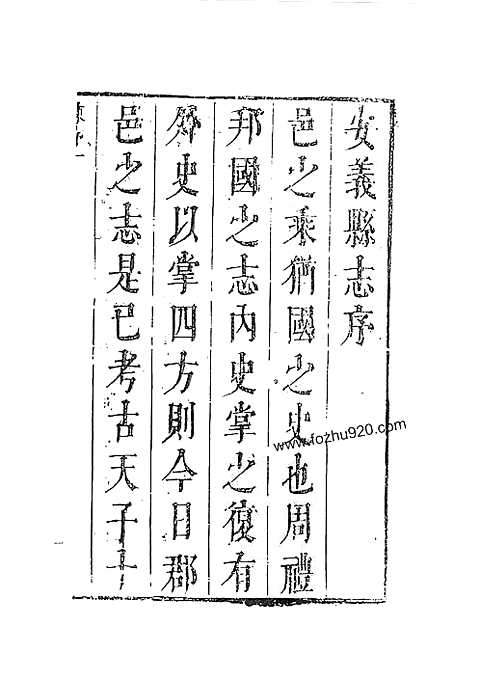 安義縣志序
邑之乘猶國之史也周禮
邦國之志內史掌之復有
外史以掌四方則今日郡
邑之志是已考古天子十
www.fozhu920.com